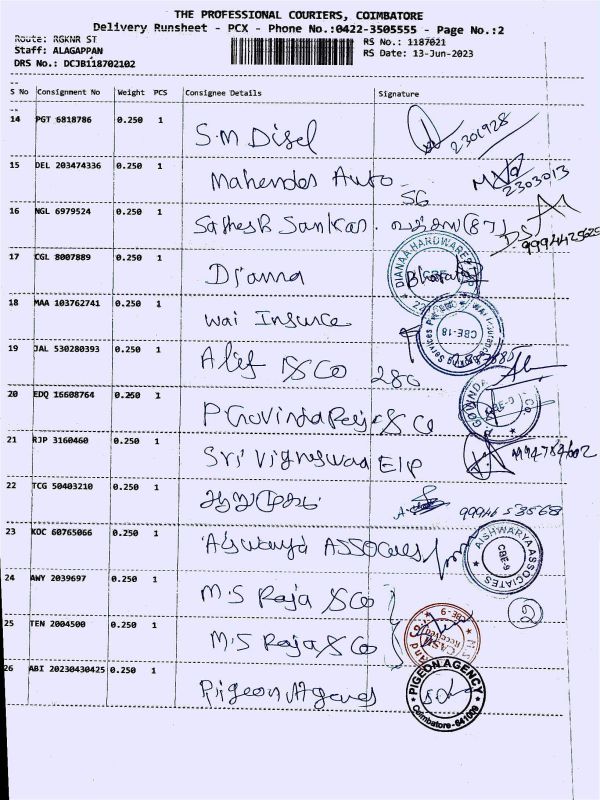 THE PROFESSIONAL COURIERS, COIMBATORE
Delivery Runsheet - PCX - Phone No.:0422-3505555 - Page No.:2
Route: RGKNR ST
RS No.: 1187021
Staff: ALAGAPPAN
RS Date: 13-Jun-2023
DRS No.: DCJB118702102
S No Consignment No Weight PCS Consignee Details Signature
14 PGT 6818786 0.250 1 S.M Disel 2301928
15 DEL 203474336 0.250 1 Mahendos Auto 56 2303013
16 NGL 6979524 0.250 1 Sathesh Sankar. (87) 9994425625
17 CGL 8007889 0.250 1 Dianna DIANAA HARDWARE CBE
18 MAA 103762741 0.250 1 Wai Insurce CBE-18
19 JAL 530280393 0.250 1 Alif & Co 286
20 EDQ 16608764 0.250 1 P Govinda Raja & Co GOWNDA & Co. CBE-9
21 RJP 3160460 0.250 1 Sri Vigneswaa Elp
22 TCG 50403210 0.250 1 ஆறுமுகம்
23 KOC 60765066 0.250 1 Aiswarya ASSOCates AISHWARYA ASSOCIATES CBE-9
24 AWY 2039697 0.250 1 M.S Raja & Co 2
25 TEN 2004500 0.250 1 M.S Raja & Co CBE-9
26 ABI 20230430425 0.250 1 Pigeon Agences PIGEON AGENCY Coimbatore-641009